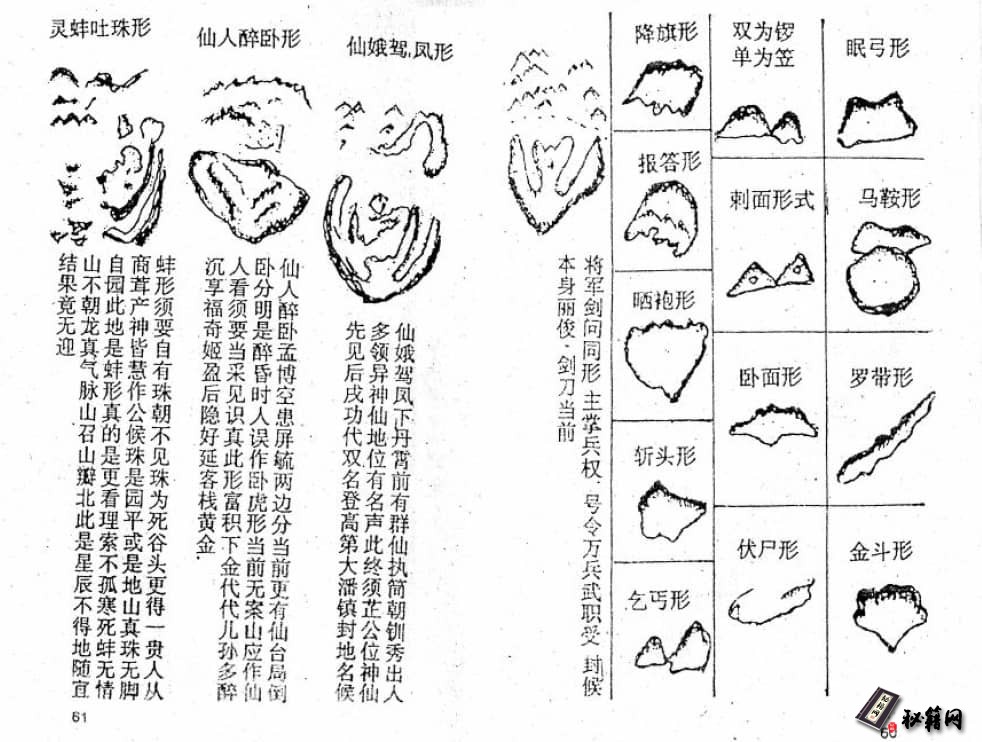 眠弓形
马鞍形
罗带形
金斗形
双为锣
单为笠
刺面形式
卧面形
伏尸形
降旗形
报答形
晒袍形
斩头形
乞丐形
将军剑问同形 主掌兵权、号令万兵武职受 封候
本身丽俊·剑刀当前
60
仙娥驾,凤形
仙娥驾凤下丹霄前有群仙执简朝钏秀出人
多领异神仙地位有名声此终须芷公位神仙
先见后戌功代双名登高第大潘镇封地名候
仙人醉卧形
仙人醉卧孟博空患屏毓两边分当前更有仙台局倒
卧分明是醉昏时人误作卧虎形当前无案山应作仙
人看须要当采见识真此形富积下金代代儿孙多醉
沉享福奇姬盈后隐好延客栈黄金.
灵蚌吐珠形
蚌形须要自有珠朝不见珠为死谷头更得一贵人从
商茸产神皆慧作公候珠是园平或是地山真珠无脚
自园此地是蚌形真的是更看理索不孤寒死蚌无情
山不朝龙真气脉山召山瓣北此是星辰不得地随宜
结果竟无迎
61
秘籍网